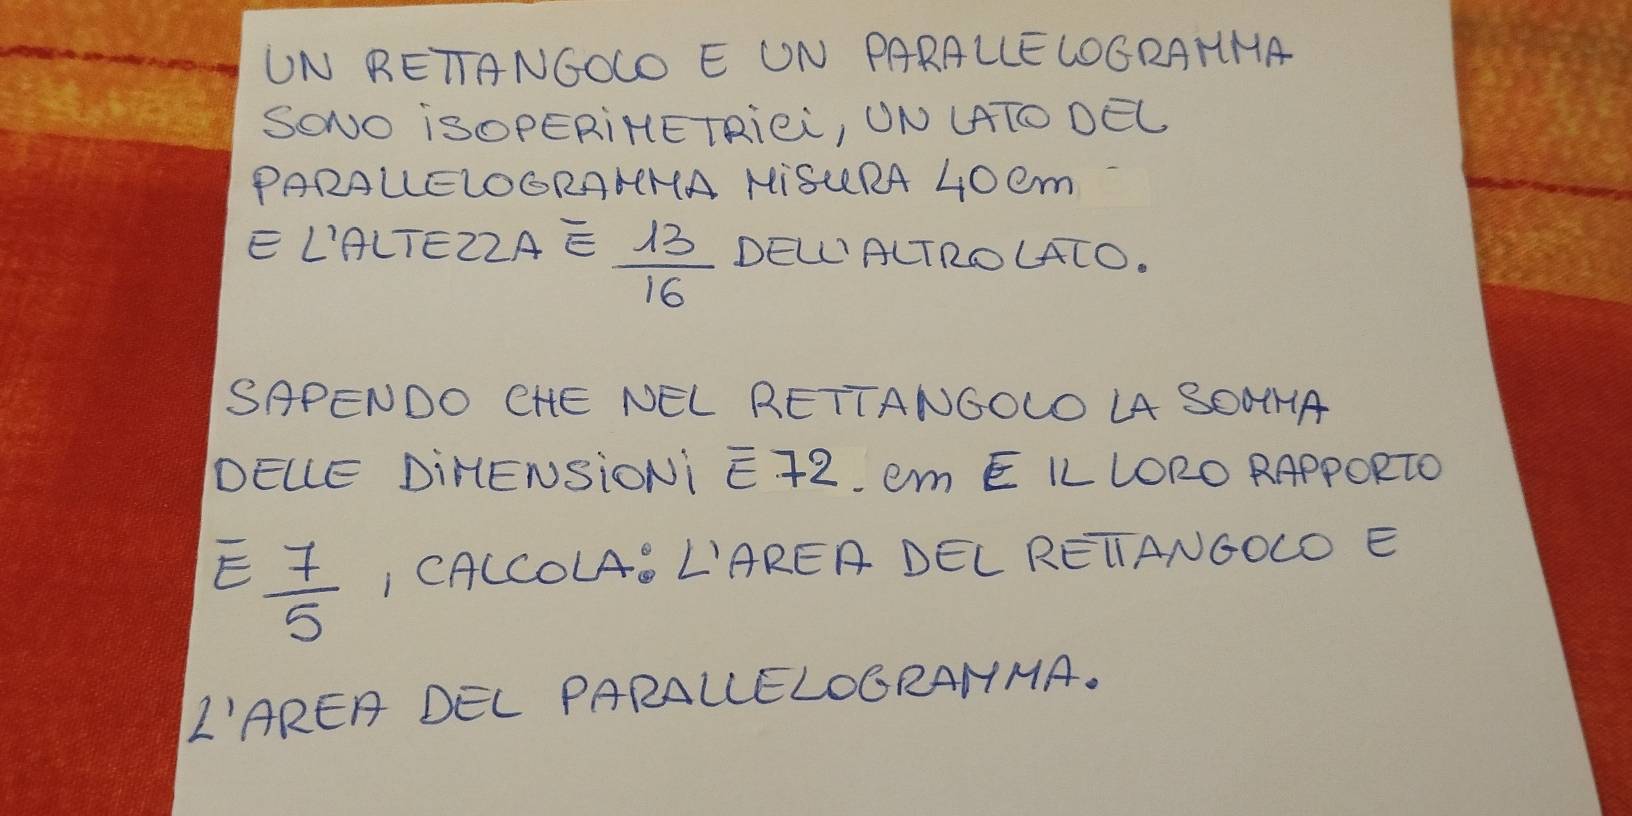 UN RETTANGOLO E UN PARALLELOGRAMMA
SONO ISOPERIMETRICI, UN LATO DEL
PARALLELOGRAMMA MISURA 40 cm
E L'ALTEZZA È 13/16 DELL'ALTRO LATO.
SAPENDO CHE NEL RETTANGOLO LA SOMMA
DELLE DIMENSIONI È 72. cm E IL LORO RAPPORTO
È 7/5, CALCOLA: L'AREA DEL RETTANGOLO E
L'AREA DEL PARALLELOGRAMMA.